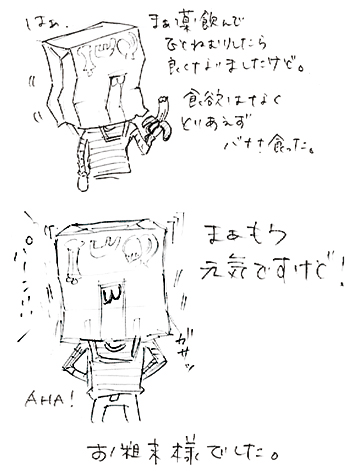 はぁ。
まぁ薬飲んで
ひとねむりしたら
良くなりましたけど。
食欲はなく
とりあえず
バナナ食った。
まぁもう
元気ですけど!
ガサッ
AHA!
お粗末様でした。